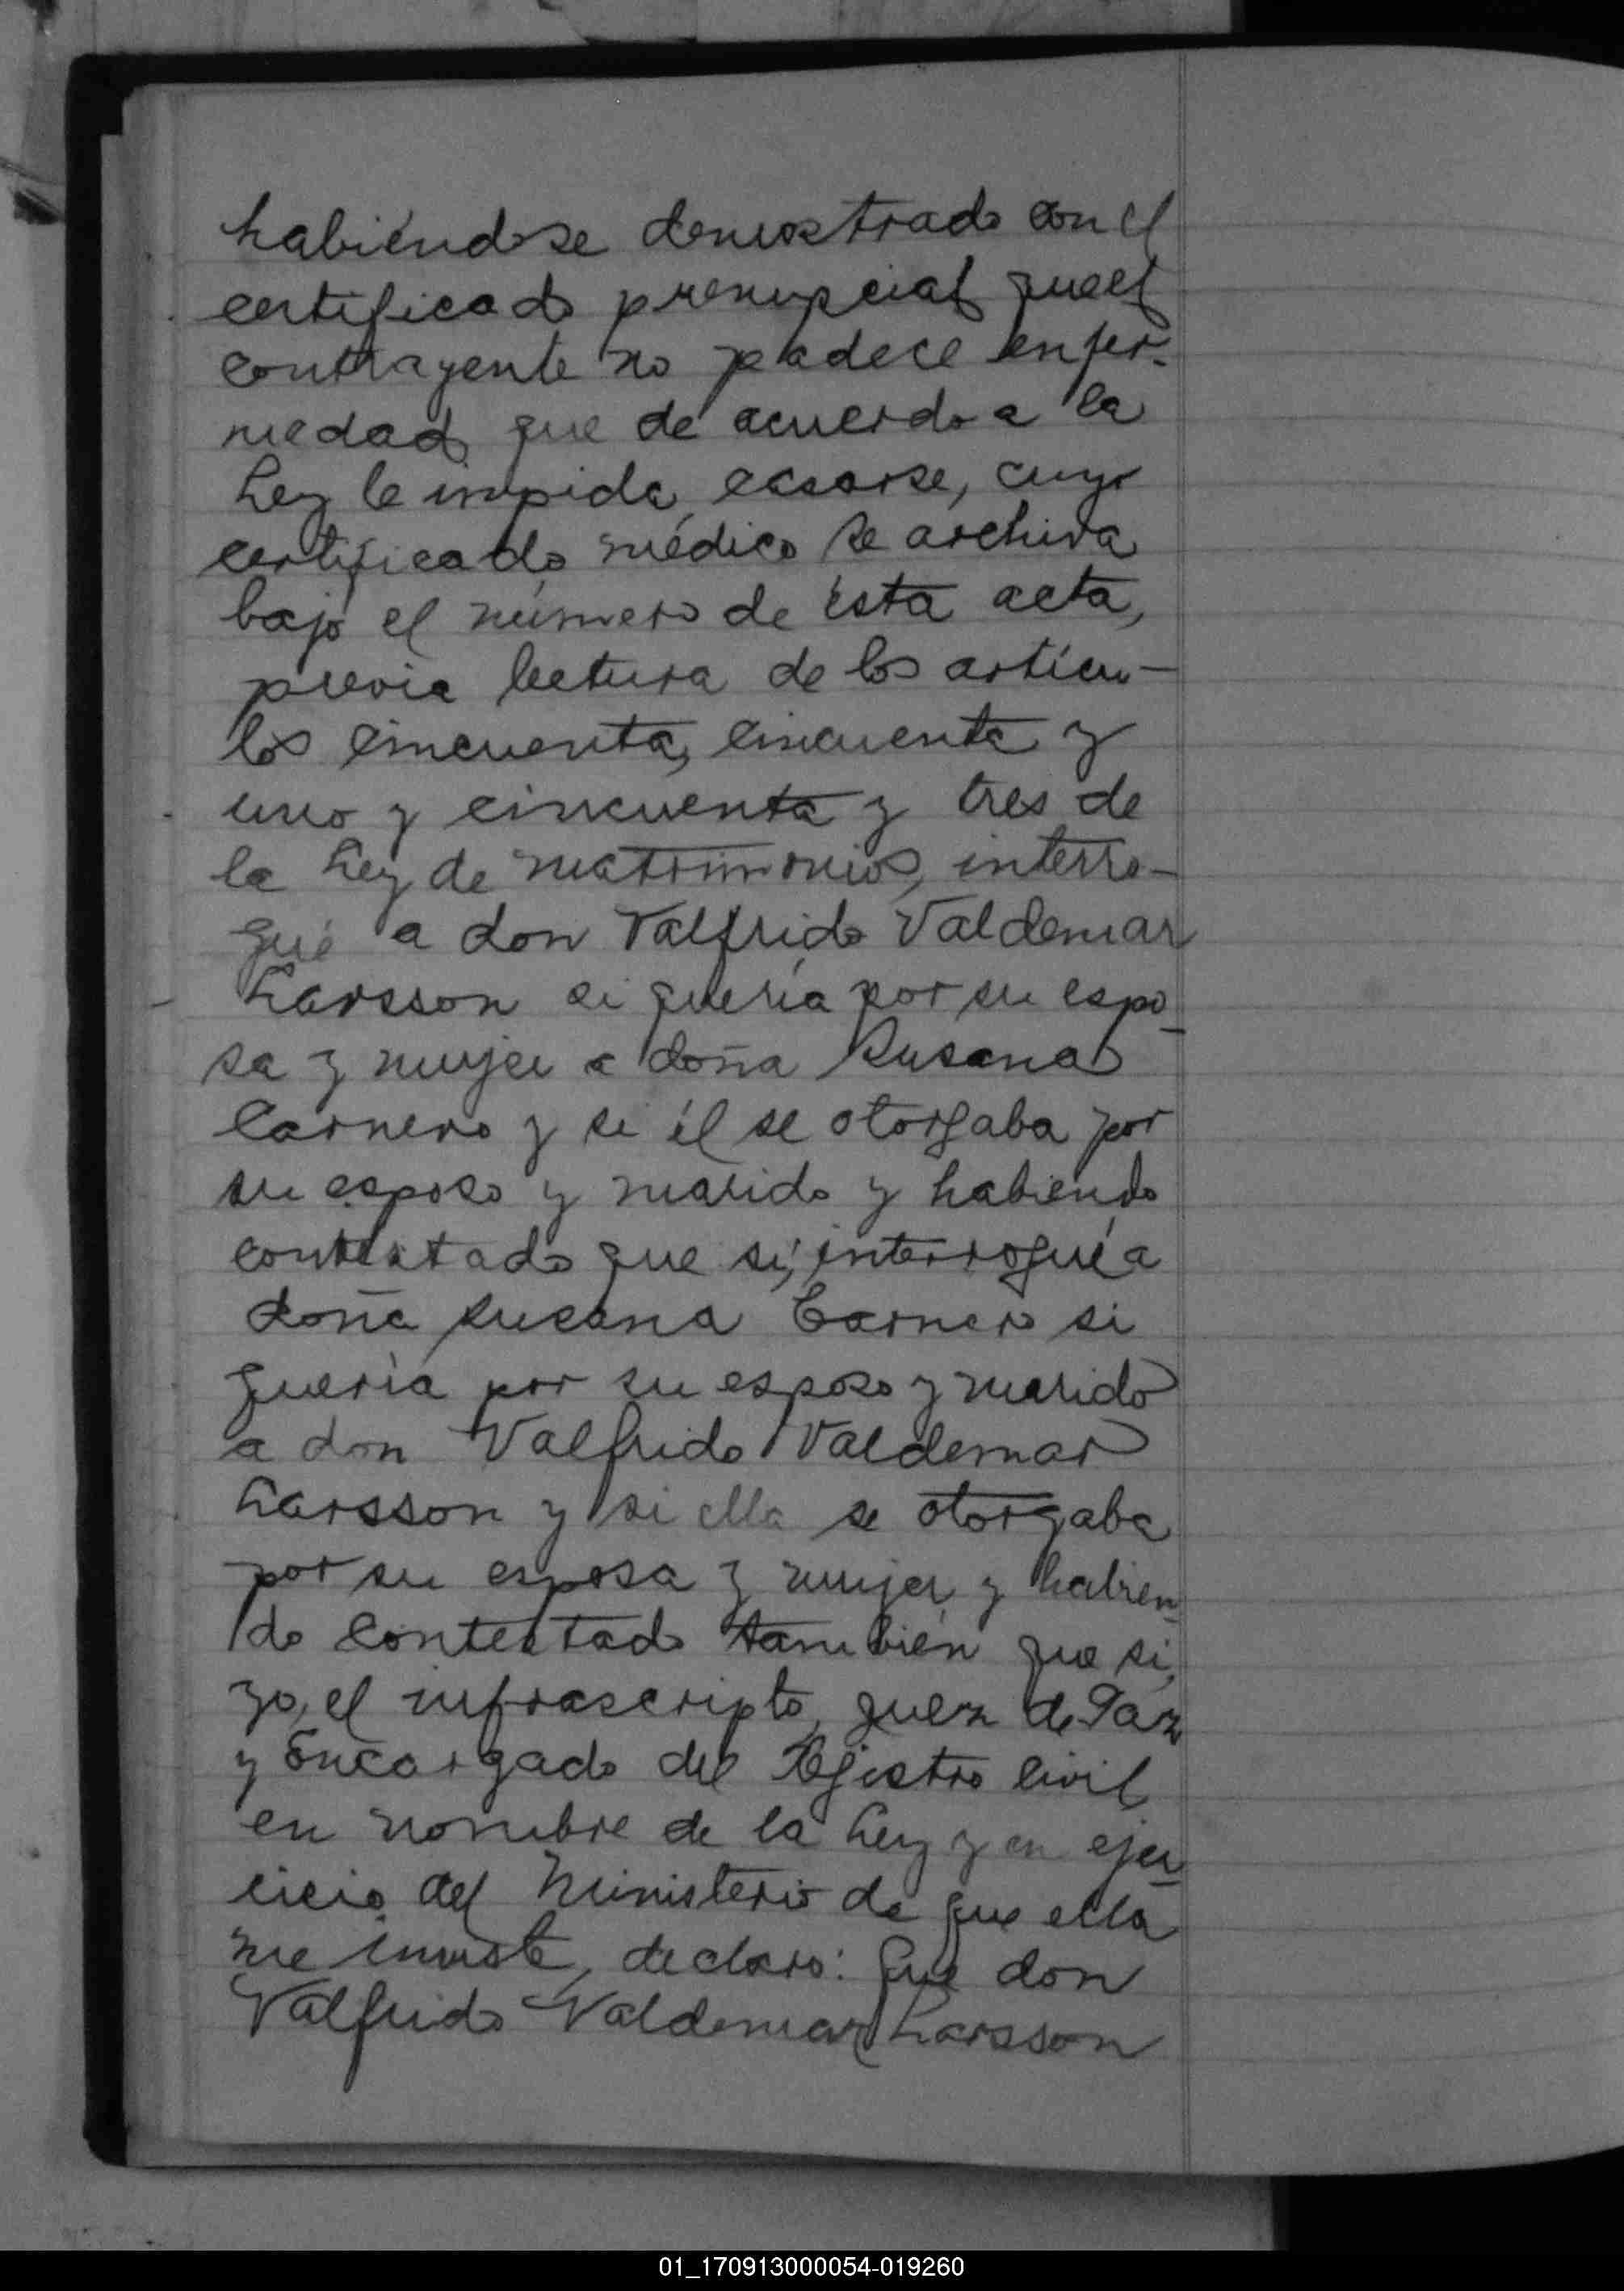 habiéndose demostrado con el
certificado prenupcial que el
contrayente no padece enfer-
medad que de acuerdo a la
Ley le impida casarse, cuyo
certificado médico se archiva
bajo el número de ésta acta,
previa lectura de los artícu-
los cincuenta, cincuenta y
uno y cincuenta y tres de
la Ley de matrimonios, interro-
gué a don Valfrido Valdemar
Larsson si quería por su espo-
sa y mujer a doña Susana
Carnero y si él se otorgaba por
su esposo y marido y habiendo
contestado que sí, interrogué a
doña Susana Carnero si
quería por su esposo y marido
a don Valfrido Valdemar
Larsson y si ella se otorgaba
por su esposa y mujer y habien-
do contestado también que sí,
yo, el infrascripto, Juez de Paz
y Encargado del Registro Civil,
en nombre de la Ley y en ejer-
cicio del Ministerio de que ella
me inviste, declaro: Que don
Valfrido Valdemar Larsson
01_170913000054-019260